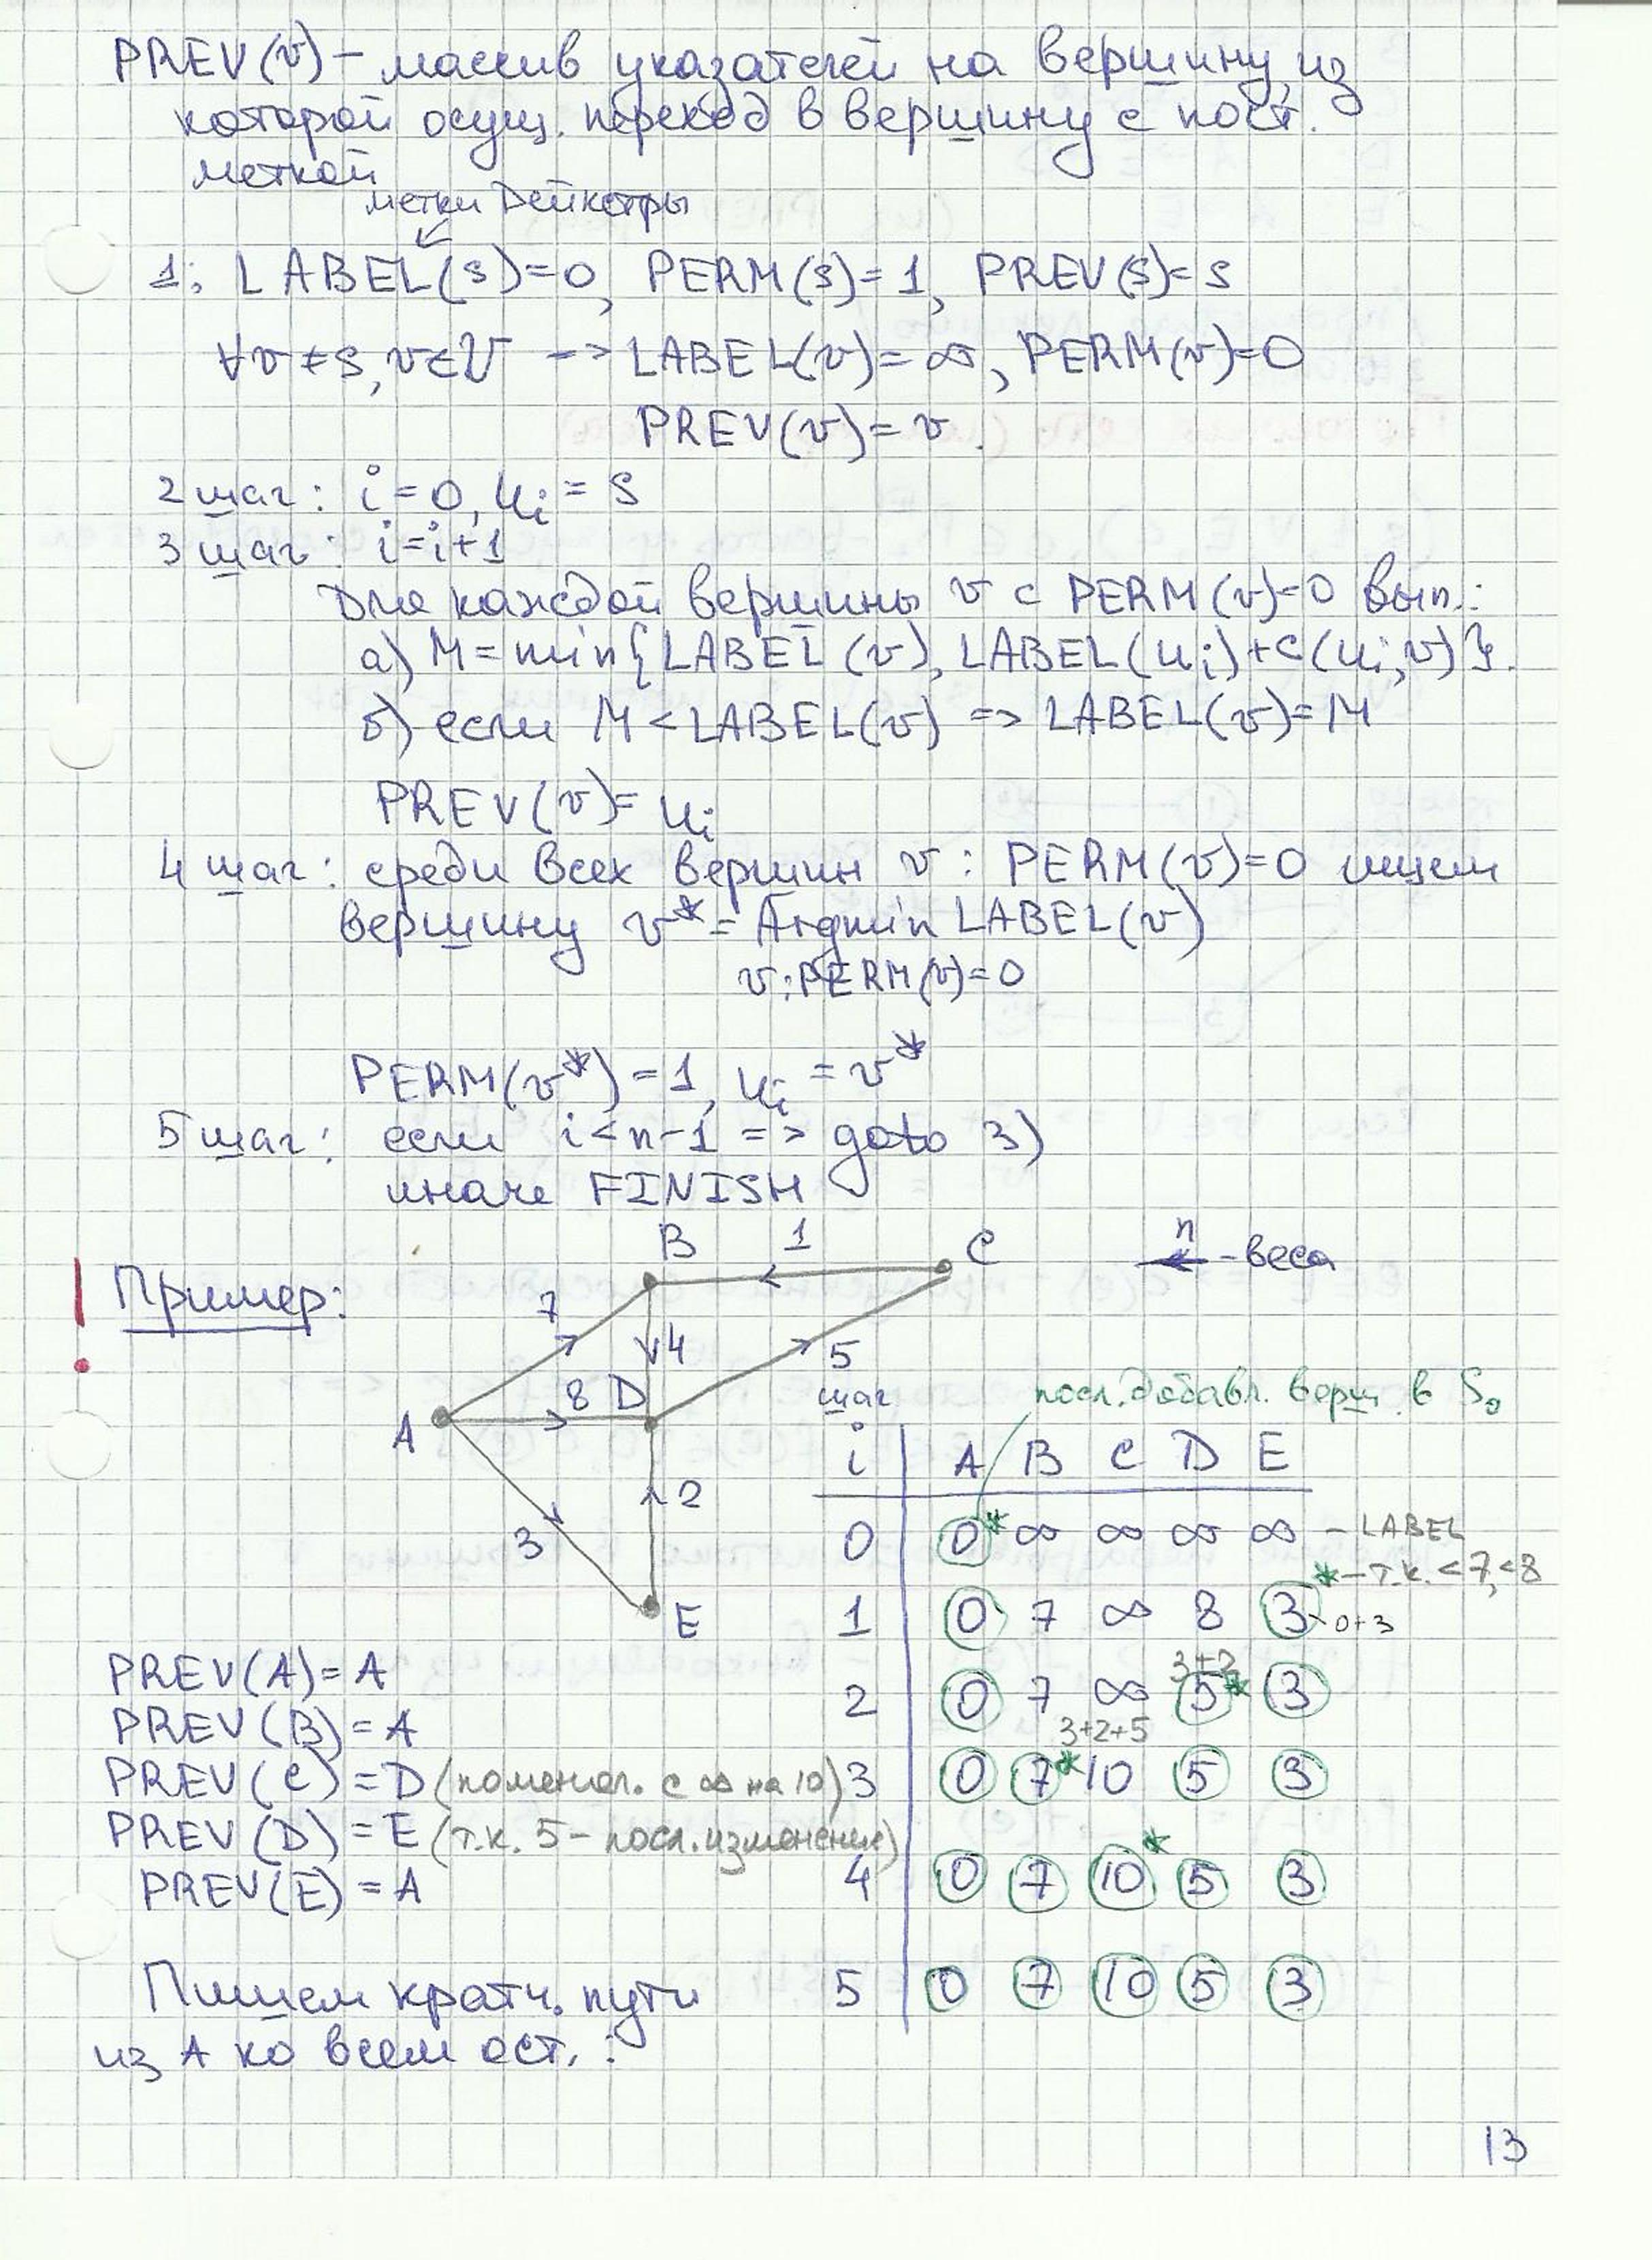 PREV(v) – массив указателей на вершину, из
которой осущ. переход в вершину с пост.
меткой
метки Дейкстры
1: LABEL(s)=0, PERM(s)=1, PREV(s)=s
∀v≠s, v∈V => LABEL(v)=∞, PERM(v)=0
PREV(v)=v.
2 шаг: i=0, ui=s
3 шаг: i=i+1
Для каждой вершины v с PERM(v)=0 вып.:
а) M=min{LABEL(v), LABEL(ui)+c(ui,v)}.
б) если M<LABEL(v) => LABEL(v)=M
PREV(v)=ui
4 шаг: среди всех вершин v: PERM(v)=0 ищем
вершину v*=Argmin LABEL(v)
v:PERM(v)=0
PERM(v*)=1, ui=v*
5 шаг: если i<n-1 => goto 3)
иначе FINISH
! Пример:
B 1 C
n - веса
7
4
5
8 D
A
2
3
E
шаг
посл. добавл. верш. в S0
i A B C D E
0 0* ∞ ∞ ∞ ∞ - LABEL
* - т.к. <7,<8
1 0 7 ∞ 8 3 0+3
3+2
2 0 7 ∞ 5* 3
3+2+5
3 0 7* 10 5 3
4 0 7 10* 5 3
5 0 7 10 5 3
PREV(A)=A
PREV(B)=A
PREV(C)=D (поменял. с ∞ на 10)
PREV(D)=E (т.к. 5 – посл. изменение)
PREV(E)=A
Пишем кратч. пути
из A ко всем ост.:
13